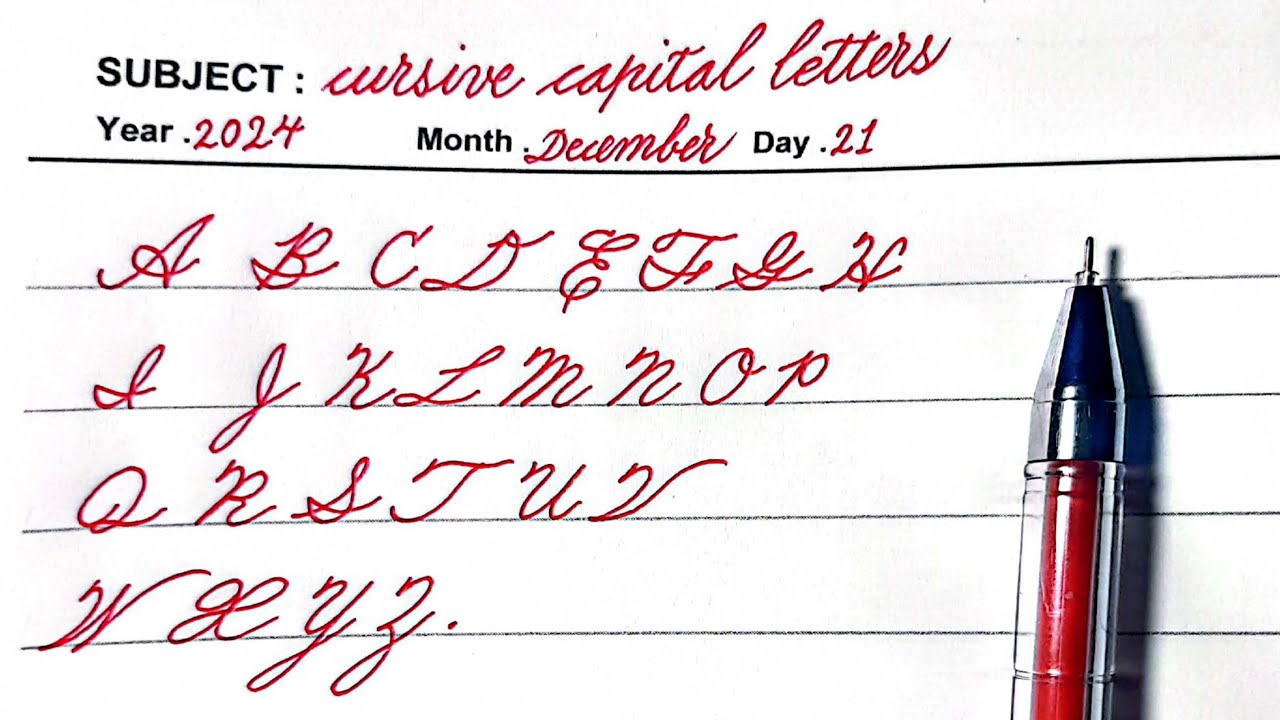 SUBJECT : cursive capital letters
Year . 2024 Month . December Day . 21
A B C D E F G H
I J K L M N O P
Q R S T U V
W X Y Z .